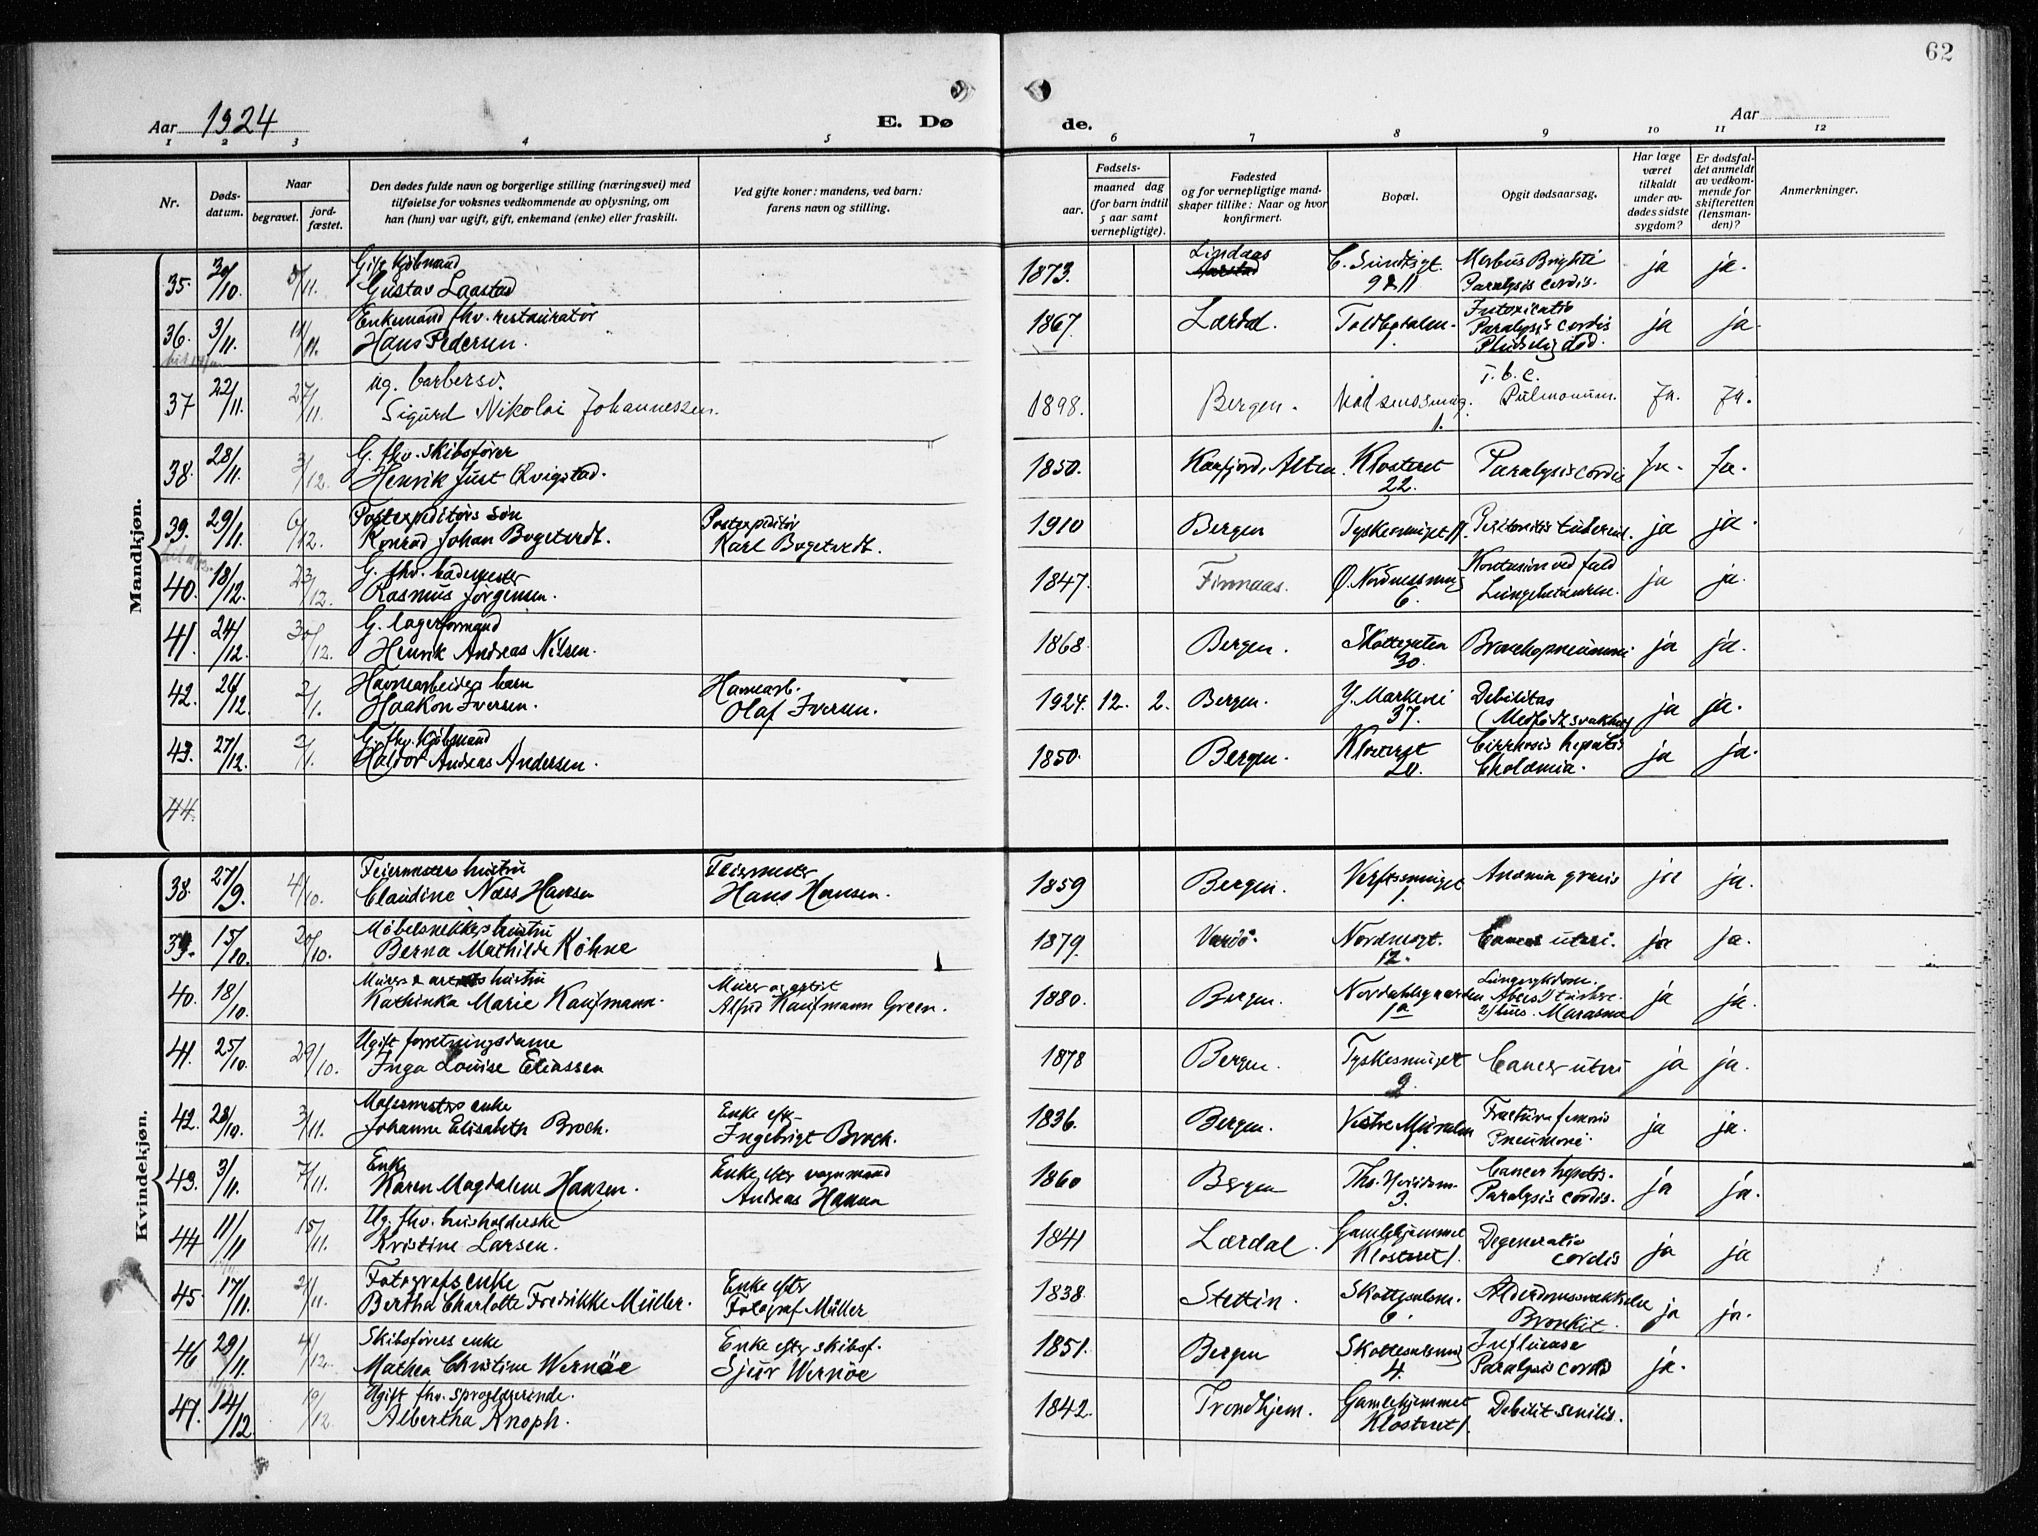 62
Aar 1924
E. Dø
de.
Aar
1 2 3 4 5 6 7 8 9 10 11 12
Nr.
Døds-
datum.
Naar
begravet.
jord-
fæstet.
Den dødes fulde navn og borgerlige stilling (næringsvei) med
tilføielse for voksnes vedkommende av oplysning, om
han (hun) var ugift, gift, enkemand (enke) eller fraskilt.
Ved gifte koner: mandens, ved barn:
farens navn og stilling.
Fødsels-
aar.
maaned dag
(for barn indtil
5 aar samt
vernepligtige).
Fødested
og for vernepligtige mand-
skaper tillike: Naar og hvor
konfirmert.
Bopæl.
Opgit dødsaarsag.
Har læge
været
tilkaldt
under av-
dødes sidste
sygdom?
Er dødsfal-
det anmeldt
av vedkom-
mende for
skifteretten
(lensman-
den)?
Anmerkninger.
Mandkjøn.
Gift kjøbmand Lindaas C. Sundtsgt. Morbus Brighti
35. 30/10 5/11. Gustav Laastad 1873. 9 & 11 Paralysis cordis. ja ja.
Enkemand fhv. restauratør Intoxicatio
36. 3/11. 11/11. Hans Pedersen. 1867. Lærdal. Toldbodalm. Paralysis cordis ja ja.
Pludselig død.
ug. barbersv. T. b. c.
37 22/11. 27/11. Sigurd Nikolai Johannessen. 1898. Bergen. 1. Pulmonum. Ja. Ja.
G. fhv. skibsfører
38. 28/11. 3/12. Henrik Just Qvigstad. 1850. Kaafjord, Alten Klosteret 22. Paralysis cordis Ja. Ja.
Postexpeditørs søn Postexpeditør
39. 29/11. 6/12. Konrad Johan Bogetvedt. Karl Bogetvedt. 1910 Bergen Tyskesmuget 11. Peritonitis tubercul. ja ja.
G. fhv. bademester Kontusion ved fald
40. 18/12. 23/12. Rasmus Jørgensen. 1847. Finnaas. Ø. Nordnessmug 6. Lungebetændelse. ja ja.
G. lagerformand
41. 24/12. 30/12. Henrik Andreas Nilsen. 1868. Bergen. Skottegaten 30. Bronchopneumoni ja ja.
Havnearbeiders barn Havnearb.
42. 26/12. 2/1. Haakon Iversen. Olaf Iversen. 1924. 12. 2. Bergen. Y. Markevei 37. Debilitas ja ja.
(Medfødt svakhet)
G. fhv. Kjøbmand Cirrhosis hepatis
43. 27/12. 2/1. Haldor Andreas Andersen. 1850. Bergen. Klosteret 20. Cholæmia. ja ja.
44.
Kvindekjøn.
Feiermesters hustru Feiermester
38. 27/9. 4/10. Claudine Næss Hansen Hans Hansen. 1859 Bergen. Verftsmuget 1. Anæmia gravis ja ja.
Møbelsnekkers hustru
39. 15/10. 20/10. Berna Mathilde Köhne 1879. Vardö. Nordnesgt. 12. Cancer uteri. ja ja.
Murers & artists hustru Murer og artist Lungesykdom.
40. 18/10. Kathinka Marie Kaufmann. Alfred Kaufmann Green. 1880. Bergen. Nordahlsgaarden 1a Marasme ja ja.
Ugift forretningsdame
41. 25/10. 29/10. Inga Louise Eliassen 1878 Bergen. Tyskesmuget 9. Cancer uteri ja ja.
Malermesters enke Enke eft. Fractura femoris
42. 28/10. 3/11. Johanne Elisabeth Broch. Ingebrigt Broch. 1836. Bergen. Vestre Muralm. Pneumoni. ja ja.
Enke Enke efter vognmand Cancer hepatis.
43. 3/11. 7/11. Karen Magdalene Hansen. Andreas Hansen 1860 Bergen 3. Paralysis cordis. ja ja.
Ug. fhv. husholderske Gamlehjemmet Degeneratio
44 11/11 15/11. Kristine Larsen. 1841 Lærdal. Klosteret 1. cordis ja ja
Fotografs enke Enke efter Alderdomssvækkelse
45 17/11. 21/11. Bertha Charlotte Fredrikke Müller. Fotograf Müller 1838. Stettin. Skottesalm. 6. Bronkit. ja ja.
Skibsførers enke Enke efter skibsf. Influensa
46 29/11. 4/12. Mathea Christine Wernøe Sjur Wernøe 1851. Bergen Skottesalsmug 4. Paralysis cordis ja.
Ugift fhv. sproglærerinde. Gamlehjemmet
47. 14/12 19/12. Albertha Knoph. 1842. Trondhjem. Klosteret 1. Debilit. senilis.